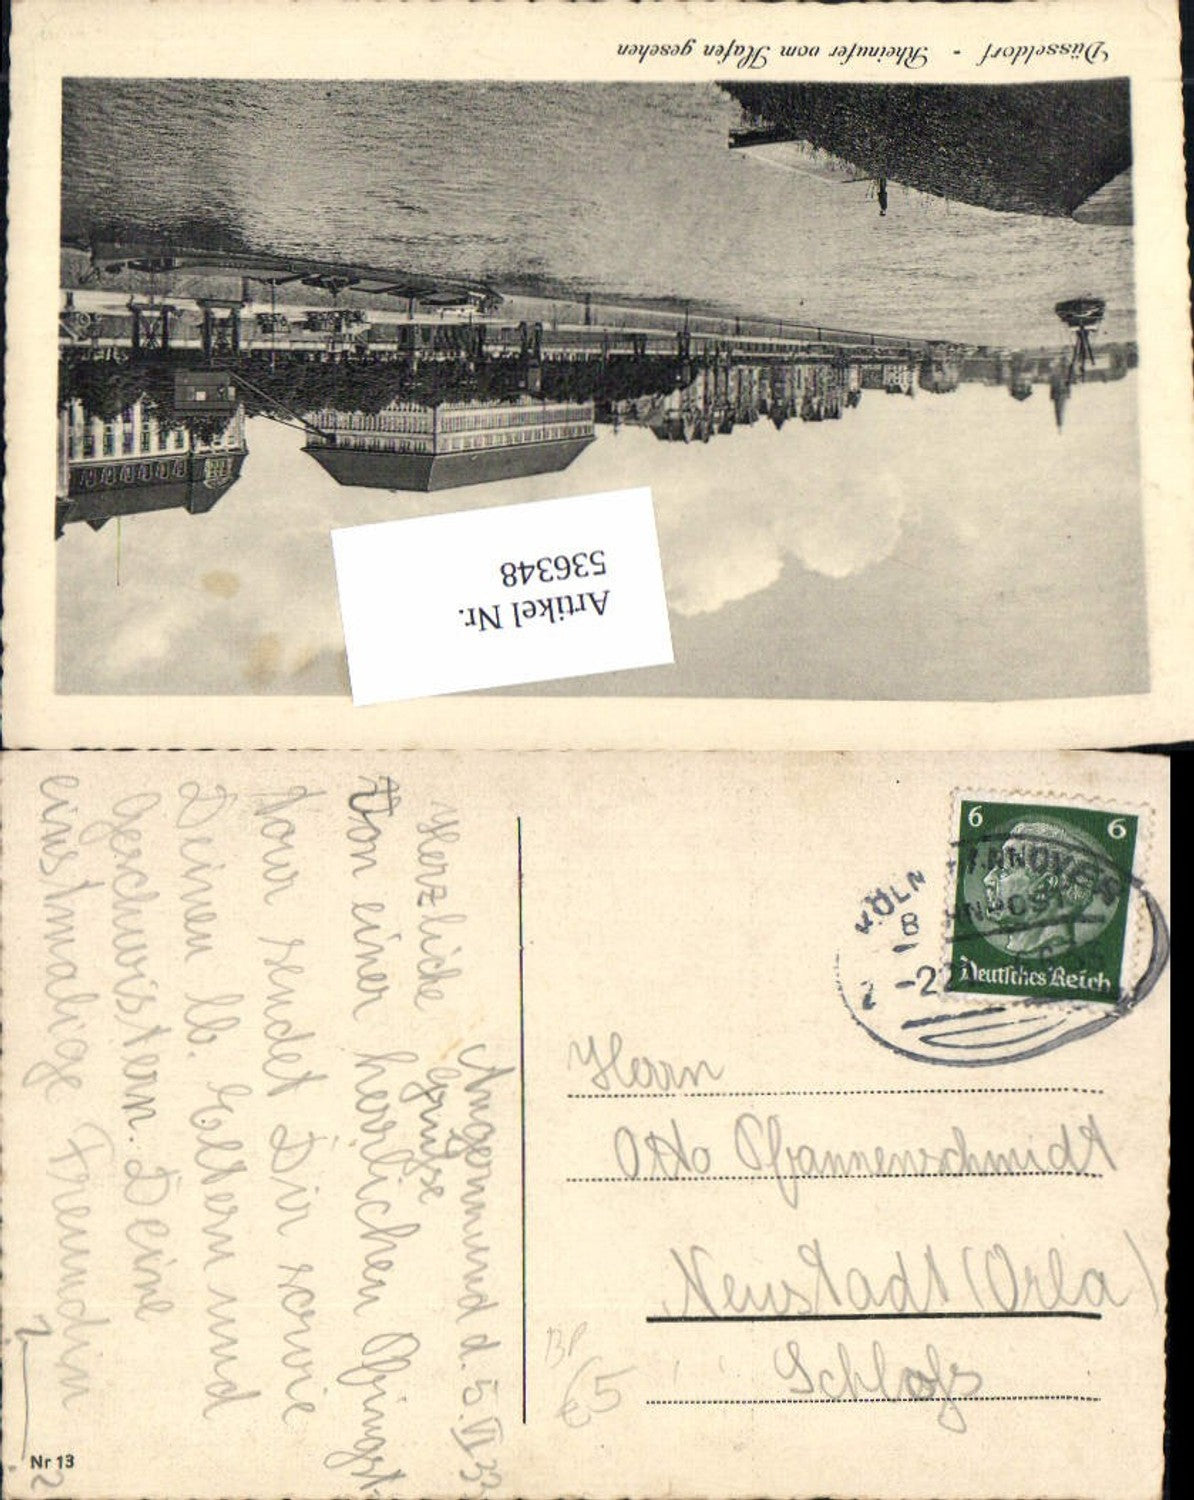 Düsseldorf - Rheinufer vom Hafen gesehen
Artikel Nr.
536348
6 6
Deutsches Reich
KÖLN HANNOVER
BAHNPOST
Angermund d. 5. VI 33
Herzliche Grüße
Von einer herrlichen Pfingst-
tour sendet Dir sowie
Deinen lb. Eltern und
Geschwistern. Deine
einstmalige Freundin
Herrn
Otto Pfannenschmidt
Neustadt (Orla)
Schloß
BP
€5
Nr 13